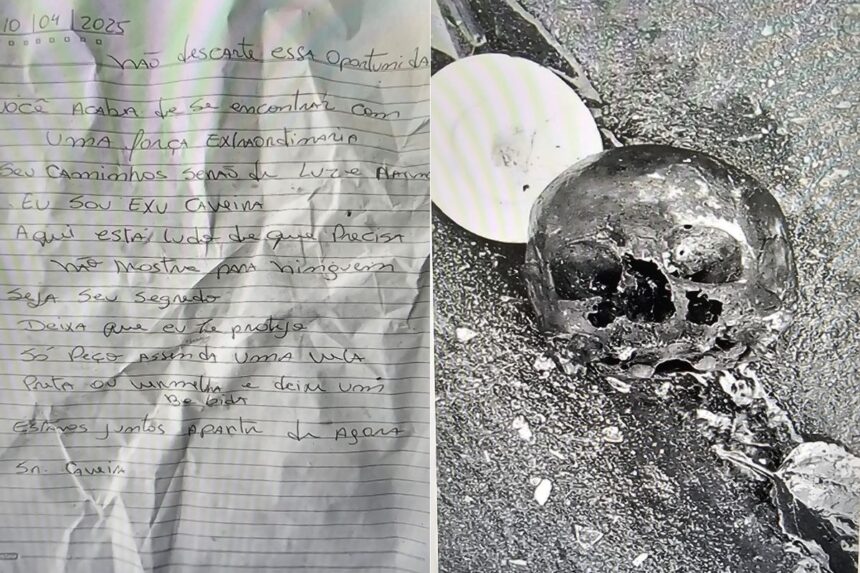 10/04/2025
Não descarte essa oportunida
Você Acaba de se encontrar com
Uma força EXtraordinaria
Seu Caminhos serão de Luz e
Eu Sou EXU CAVEIRA
Aqui está tudo de que Precisa
Não mostre para ninguem
Seja Seu Segredo
Deixa que eu te proteja
Só Peço Assenda uma vela
Preta ou vermelha e deixe um
Bebida
Estamos juntos Apartir de Agora
Sr. Caveira